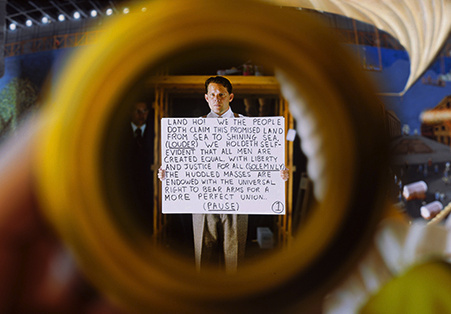 LAND HO! WE THE PEOPLE
DOTH CLAIM THIS PROMISED LAND
FROM SEA TO SHINING SEA.
(LOUDER) WE HOLDETH SELF-
EVIDENT THAT ALL MEN ARE
CREATED EQUAL WITH LIBERTY
AND JUSTICE FOR ALL (SOLEMNLY)
THE HUDDLED MASSES ARE
ENDOWED WITH THE UNIVERSAL
RIGHT TO BEAR ARMS FOR A
MORE PERFECT UNION...
(PAUSE) 1